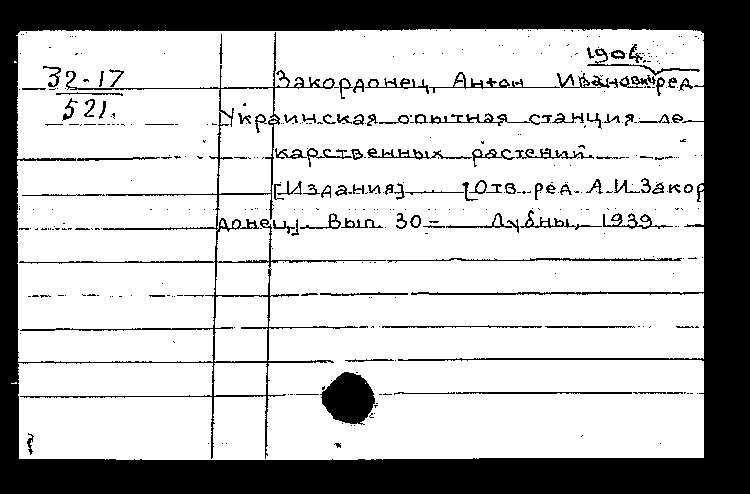 1904
32-17
521.
Закордонец, Антон Иванович ред
Украинская опытная станция ле
карственных растений.
[Издания]. [Отв. ред. А.И. Закор
донец]. Вып. 30- Лубны, 1939